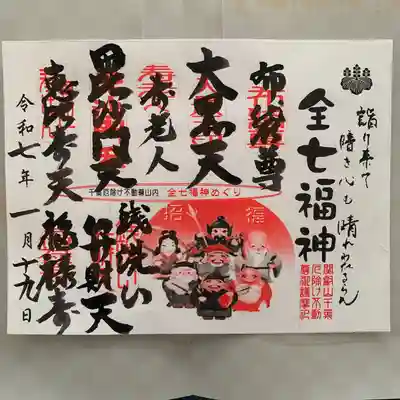 詣り来て
暗き心も晴れわたるらん
全七福神
布袋尊
大黒天
寿老人
毘沙門天
恵比寿天
令和七年
一月十九日
千葉厄除け不動尊山内 全七福神めぐり
招
福
銭洗い
弁財天
福禄寿
厄除け不動